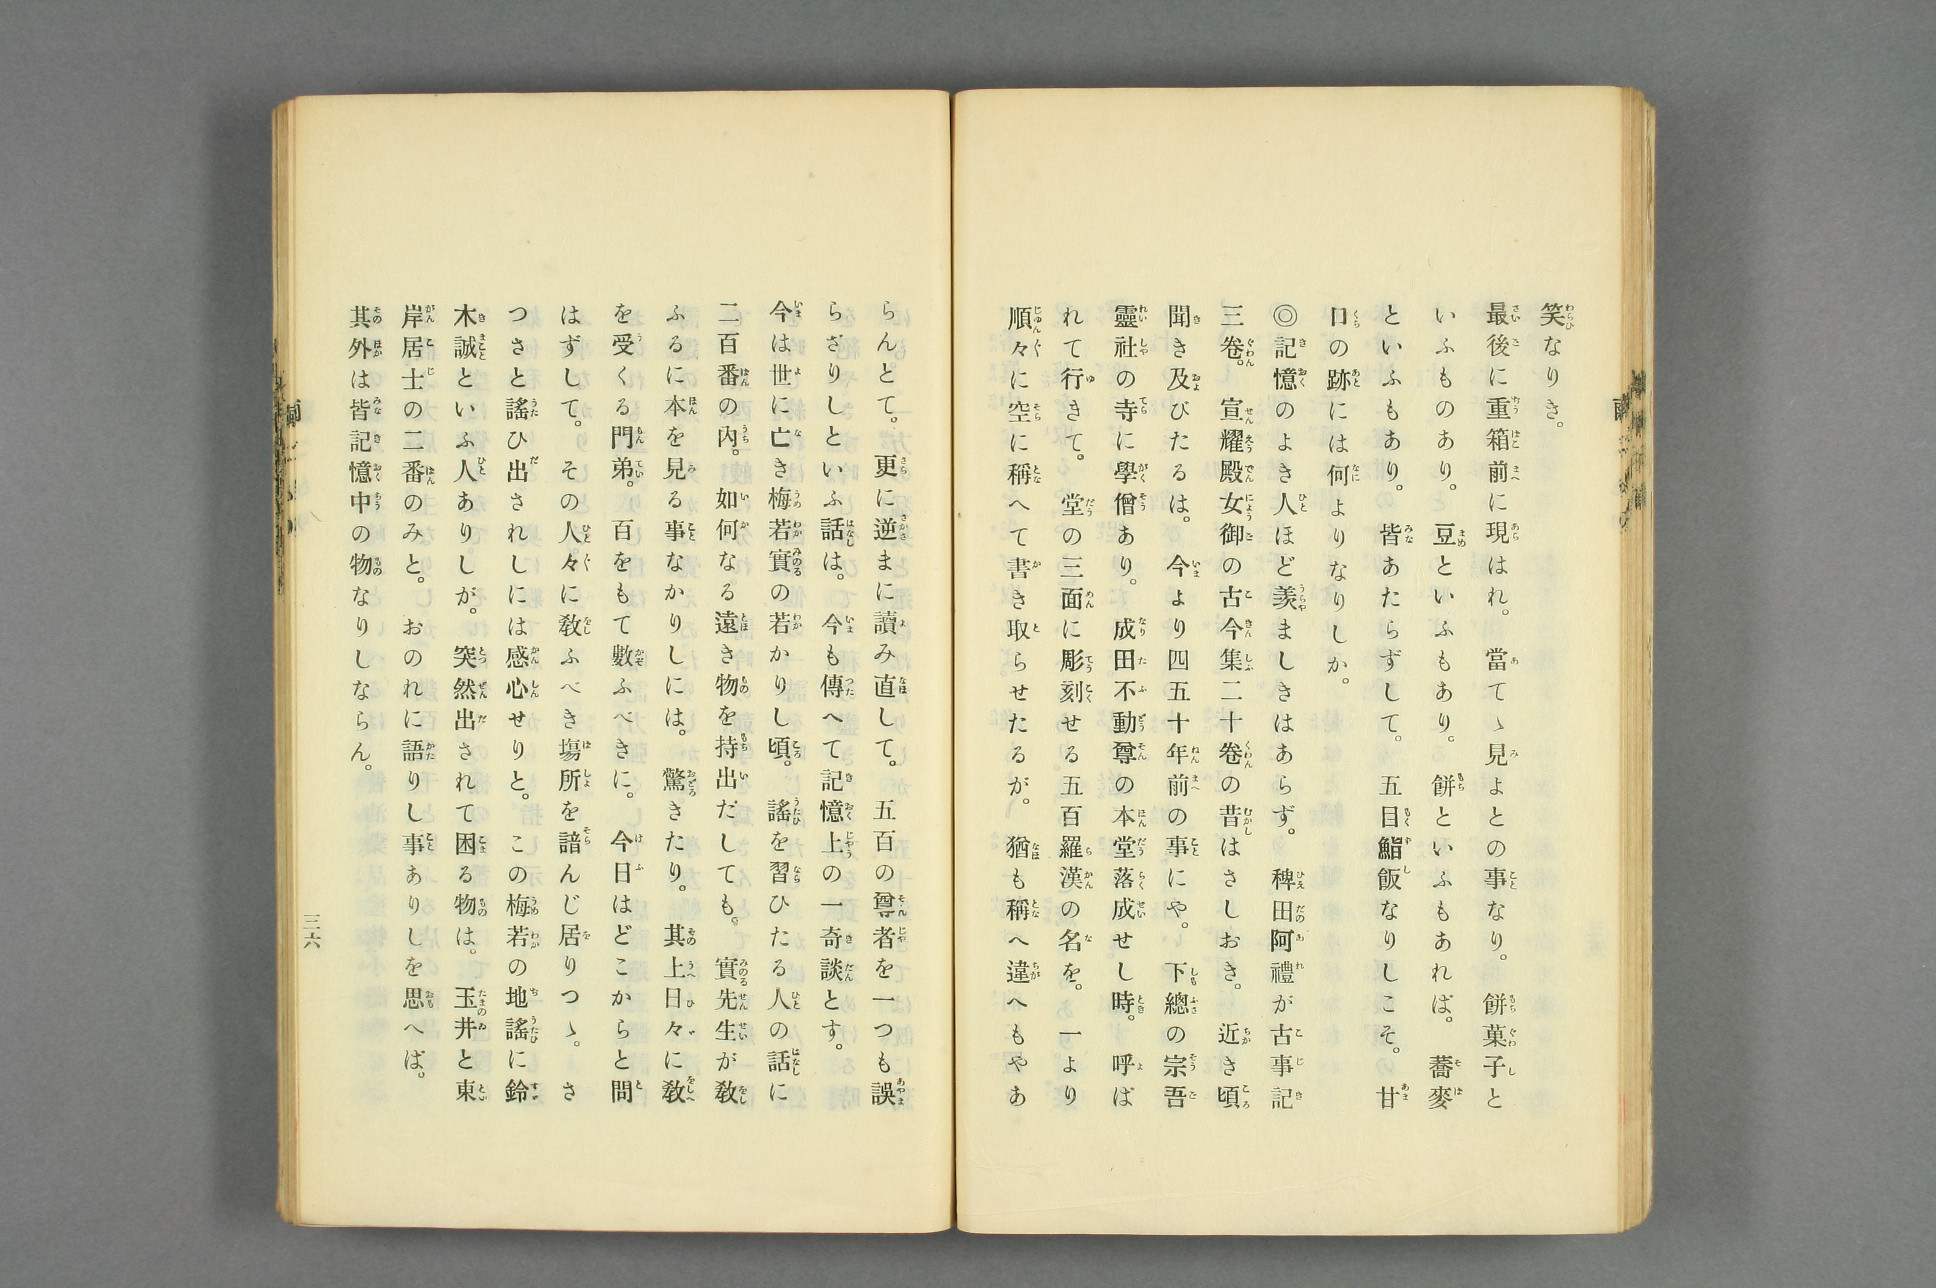 笑なりき。
最後に重箱前に現はれ。當てゝ見よとの事なり。餅菓子と
いふものあり。豆といふもあり。餅といふもあれば。蕎麥
といふもあり。皆あたらずして。五目鮨飯なりしこそ。甘
口の跡には何よりなりしか。
◎記憶のよき人ほど羨ましきはあらず。稗田阿禮が古事記
三卷。宣耀殿女御の古今集二十卷の昔はさしおき。近き頃
聞き及びたるは。今より四五十年前の事にや。下總の宗吾
靈社の寺に學僧あり。成田不動尊の本堂落成せし時。呼ば
れて行きて。堂の三面に彫刻せる五百羅漢の名を。一より
順々に空に稱へて書き取らせたるが。猶も稱へ違へもやあ
らんとて。更に逆まに讀み直して。五百の尊者を一つも誤
らざりしといふ話は。今も傳へて記憶上の一奇談とす。
今は世に亡き梅若實の若かりし頃。謠を習ひたる人の話に
二百番の内。如何なる遠き物を持出だしても。實先生が敎
ふるに本を見る事なかりしには。驚きたり。其上日々に敎
を受くる門弟。百をもて數ふべきに。今日はどこからと問
はずして。その人々に敎ふべき塲所を諳んじ居りつゝ。さ
つさと謠ひ出されしには感心せりと。この梅若の地謠に鈴
木誠といふ人ありしが。突然出されて困る物は。玉井と東
岸居士の二番のみと。おのれに語りし事ありしを思へば。
其外は皆記憶中の物なりしならん。
三六